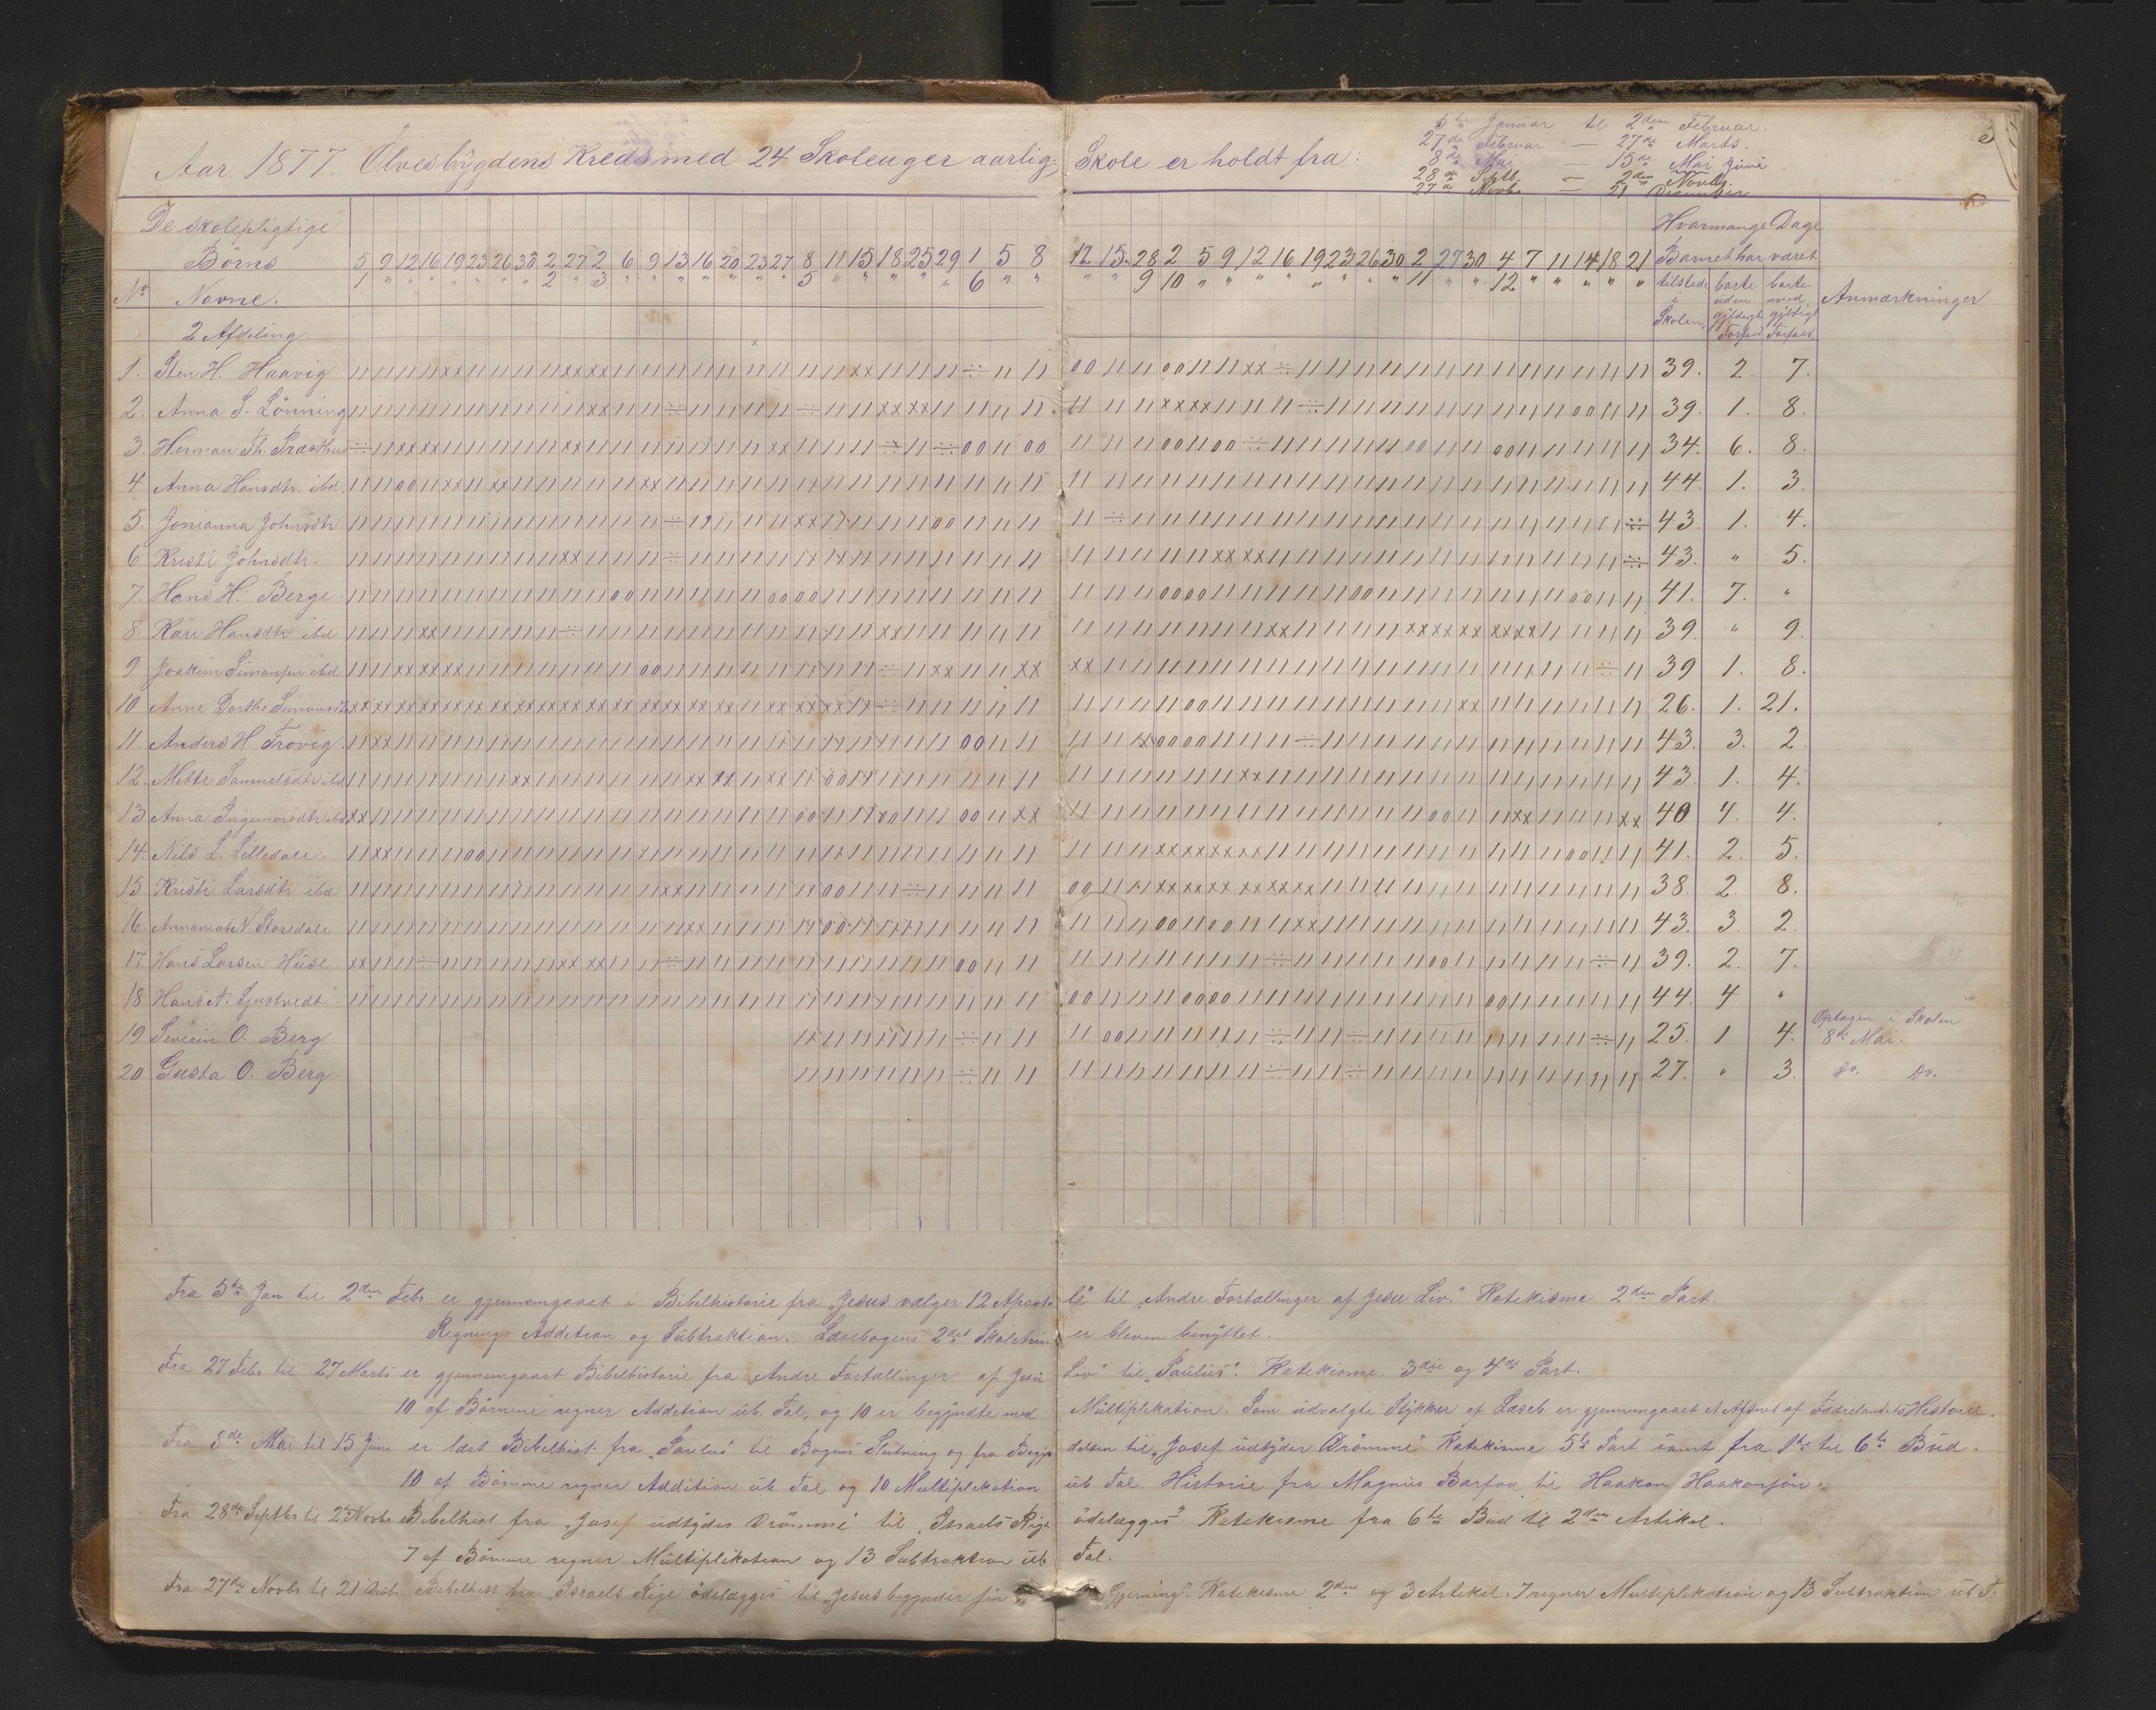 5te Januar til 2den Februar.
27de Februar — 27de Marts.
8de Mai — 15de Mai Juni
28de Septb. — 2den Novbr.
27de Novbr. — 21 December
3
Aar 1877. Ølvesbygdens Kreds med 24 Skoleuger aarlig. Skole er holdt fra:
De skolepligtige Børns
No Navne.
5 9 12 16 19 23 26 30 2 27 2 6 9 13 16 20 23 27 8 11 15 18 25 29 1 5 8 12 15 28 2 5 9 12 16 19 23 26 30 2 27 30 4 7 11 14 18 21
1 " " " " " " " 2 " 3 " " " " " " " 5 " " " " " 6 " " " " 9 10 " " " " " " " " 11 " " 12 " " " " "
Hvormange Dage Barnet har været
tilstede i Skolen, borte uden gyldigt Forfald borte med gyldigt Forfald. Anmærkninger
2 Afdeling.
1. Sten H. Haavig 39. 2. 7.
2. Anna S. Lönning 39. 1. 8.
3. Herman Th. 34. 6. 8.
4 Anna Hansdtr. ibd. 44. 1. 3.
5. Jonianna Johnsdtr 43. 1. 4.
6 Kristi Johnsdtr. 43. " 5.
7. Hans H. Berge 41. 7. "
8. Kari Hansdtr ibd 39. " 9.
9 Joakim Simonsen ibd 39 1. 8.
10 Anne Dorthe Simonsdtr 26. 1. 21.
11. Anders H Trovig 43. 3. 2
12. Mette Samuelsdtr ibd 43. 1. 4.
13. Anna Ingemarsdtr ibd 40 4. 4.
14. Nils L. Lilledale. 41. 2. 5.
15 Kristi Larsdtr ibd 38. 2. 8.
16. Annanias N. Storedale 43. 3. 2.
17. Hans Larsen Huse 39. 2. 7.
18 Hans A. Gjestvedt 44. 4 "
19 Severin O. Berg 25. 1 4. Optagen i Skolen 8de Mai.
20 Gusta O. Berg 27. " 3. Do. Do.
Fra 5te Jan til 2den Febr er gjennemgaaet i Bibelhistorie fra "Jesus vælger 12 Apostle" til "Andre Fortællinger af Jesu Liv." Katekisme 2den Part.
Regning: Addition og Subtraktion. Læsebogens 2det Skoletrin er bleven benyttet.
Fra 27 Febr til 27 Marts er gjennemgaaet Bibelhistorie fra "Andre Fortællinger af Jesu Liv" til "Paulus". Katekisme. 3die og 4de Part.
10 af Börnene regner Addition ub. Tal, og 10 er begyndte med Multiplikation. Som udvalgte Stykker af Læseb er gjennemgaaet af Fædrelandets Historie.
Fra 8de Mai til 15 Juni er læst Bibelhist. fra "Paulus" til Bogens Slutning og fra Begyndelsen til "Josef udtyder Drömme" Katekisme 5te Part samt fra 1te til 6te Bud.
10 af Börnene regner Addition ub Tal og 10 Multiplikation ub Tal. Historie fra Magnus Barfod til Haakon Haakonsön.
Fra 28de Septbr til 2 Novbr Bibelhist fra "Josef udtyder Drömme" til "Israels Rige ödelægges" Katekisme fra 6te Bud til 2den Artikel.
7 af Börnene regner Multiplikation og 13 Subtraktion ub Tal.
Fra 27de Novbr til 21 Decbr. Bibelhist fra "Israels Rige ödelægges" til "Jesus begynder sin Gjerning". Katekisme 2den og 3 Artikel. 7 regner Multiplikation og 13 Subtraktion ub T.